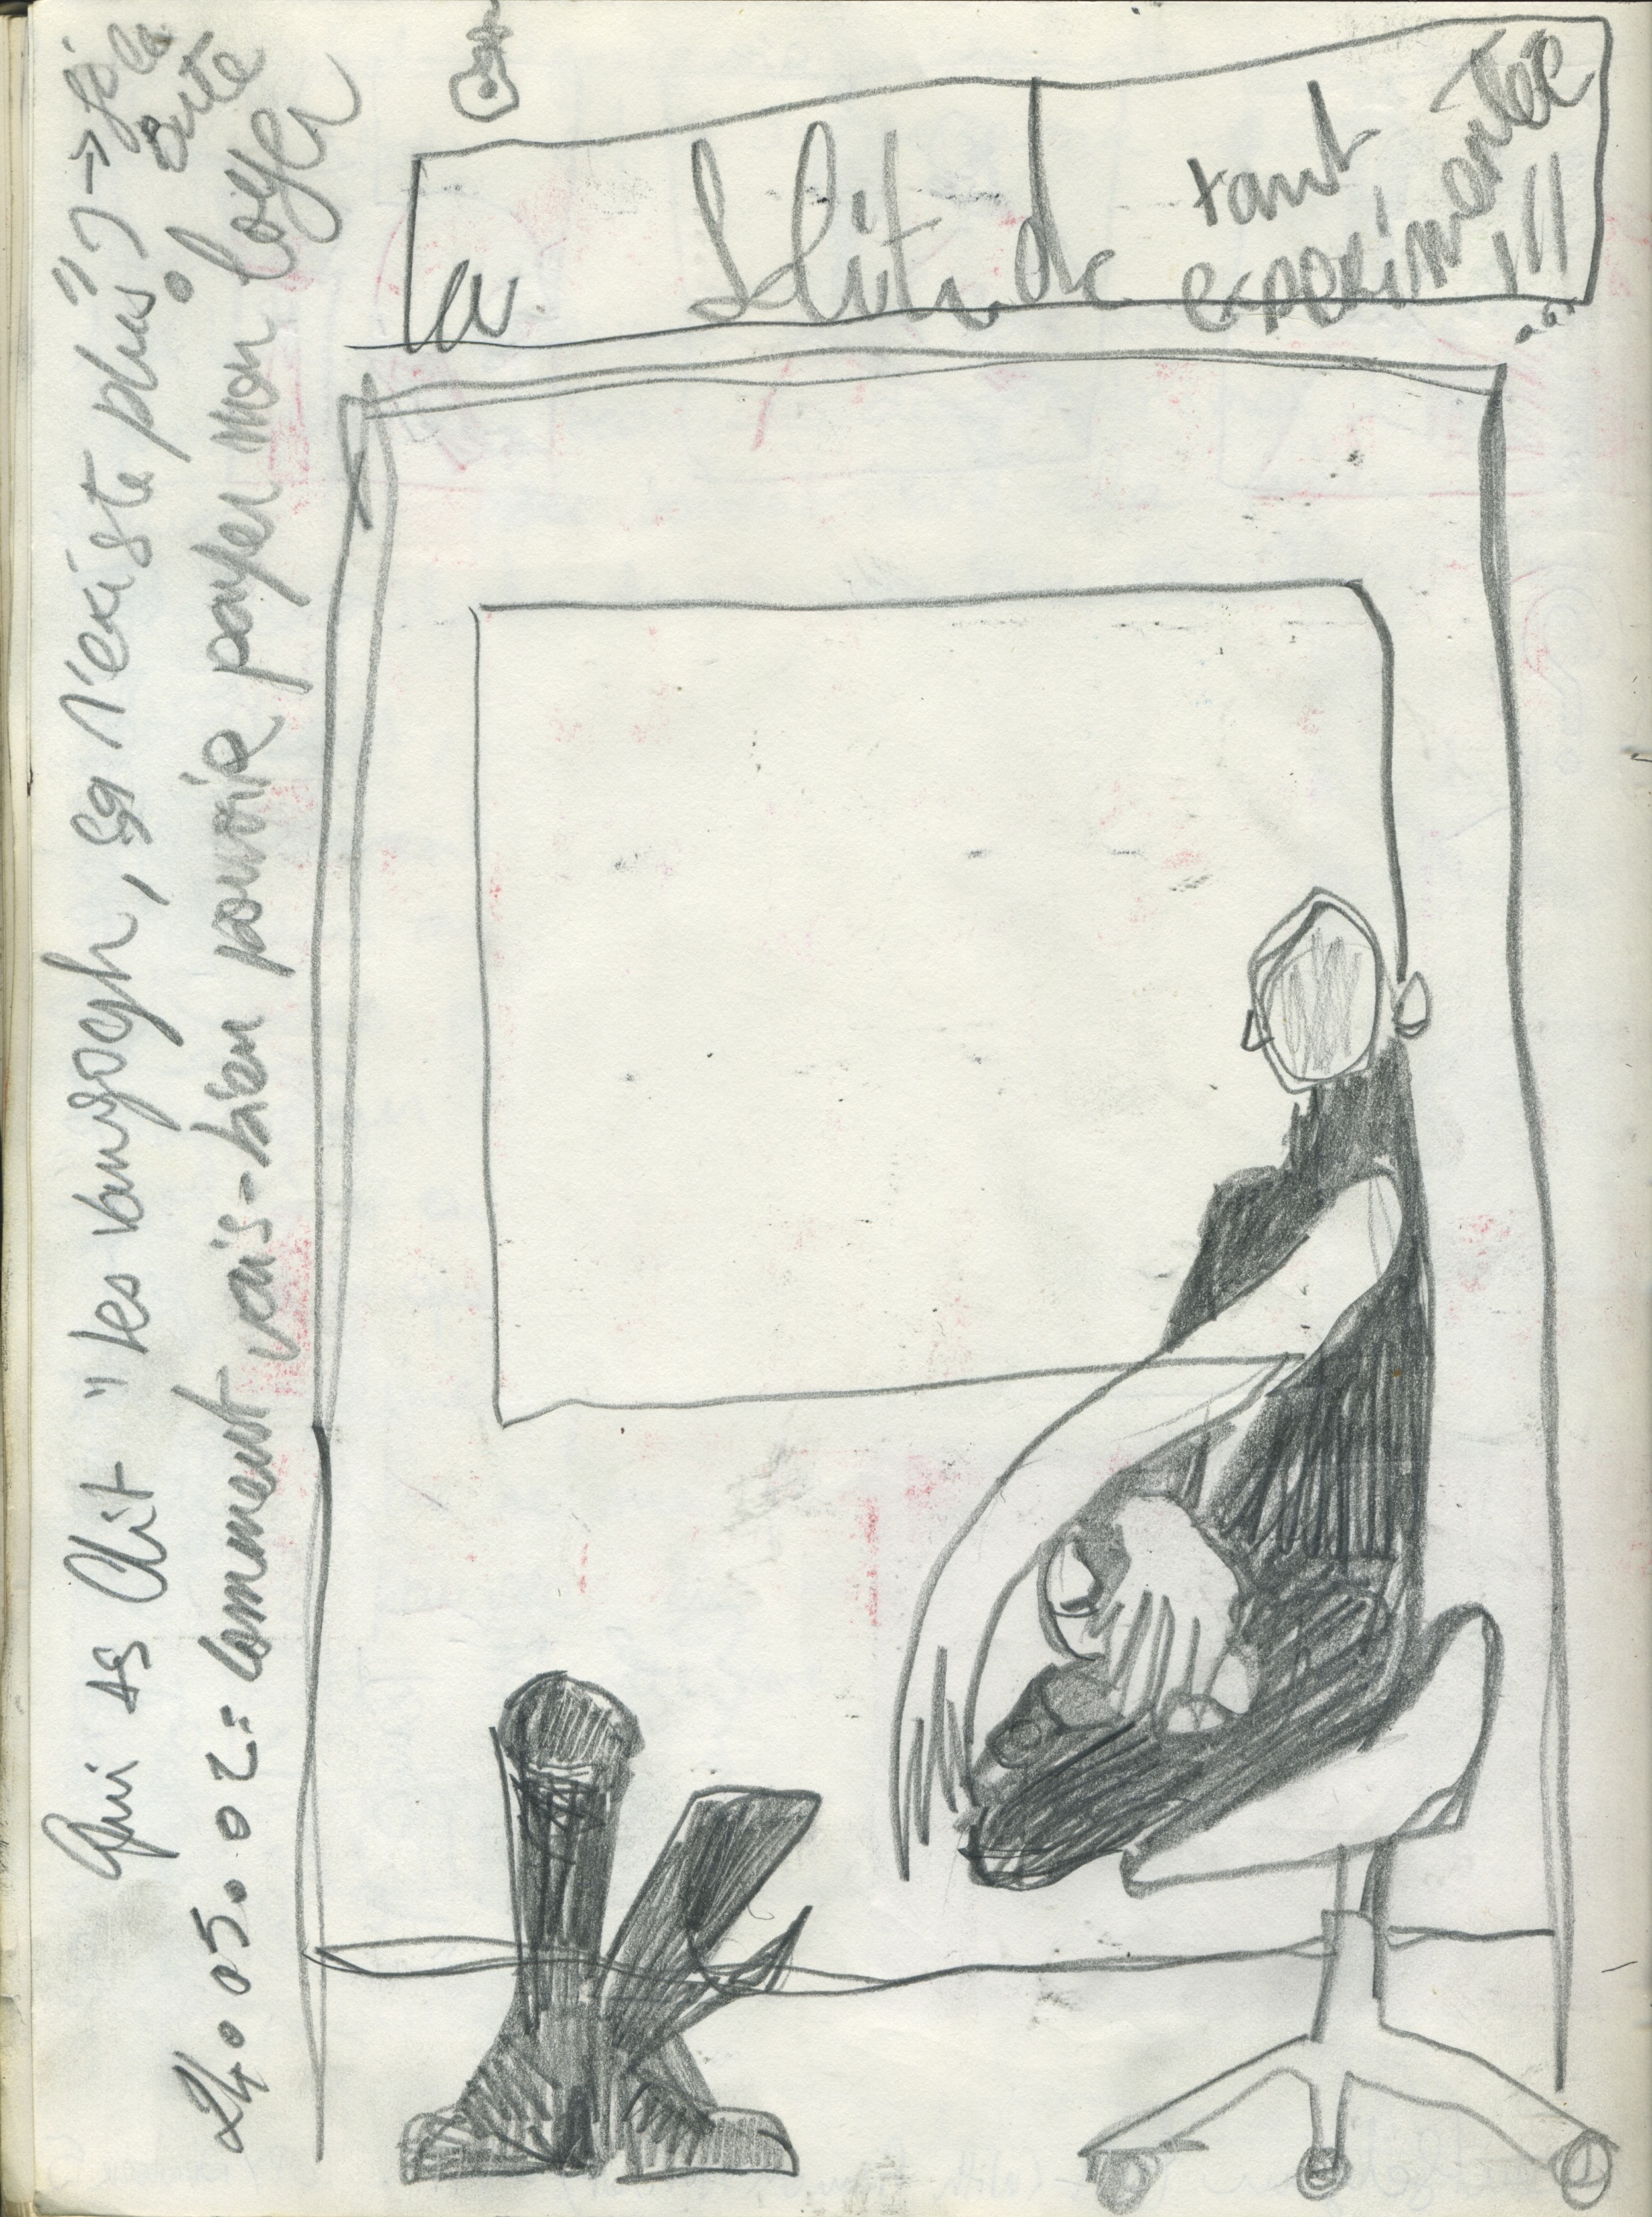 la Solitude tant
expérimentée !!!...
Qui as dit "les vangogh, ça n'existe plus"? →
24.05.02: comment vais-bien pouvoir payer mon loyer